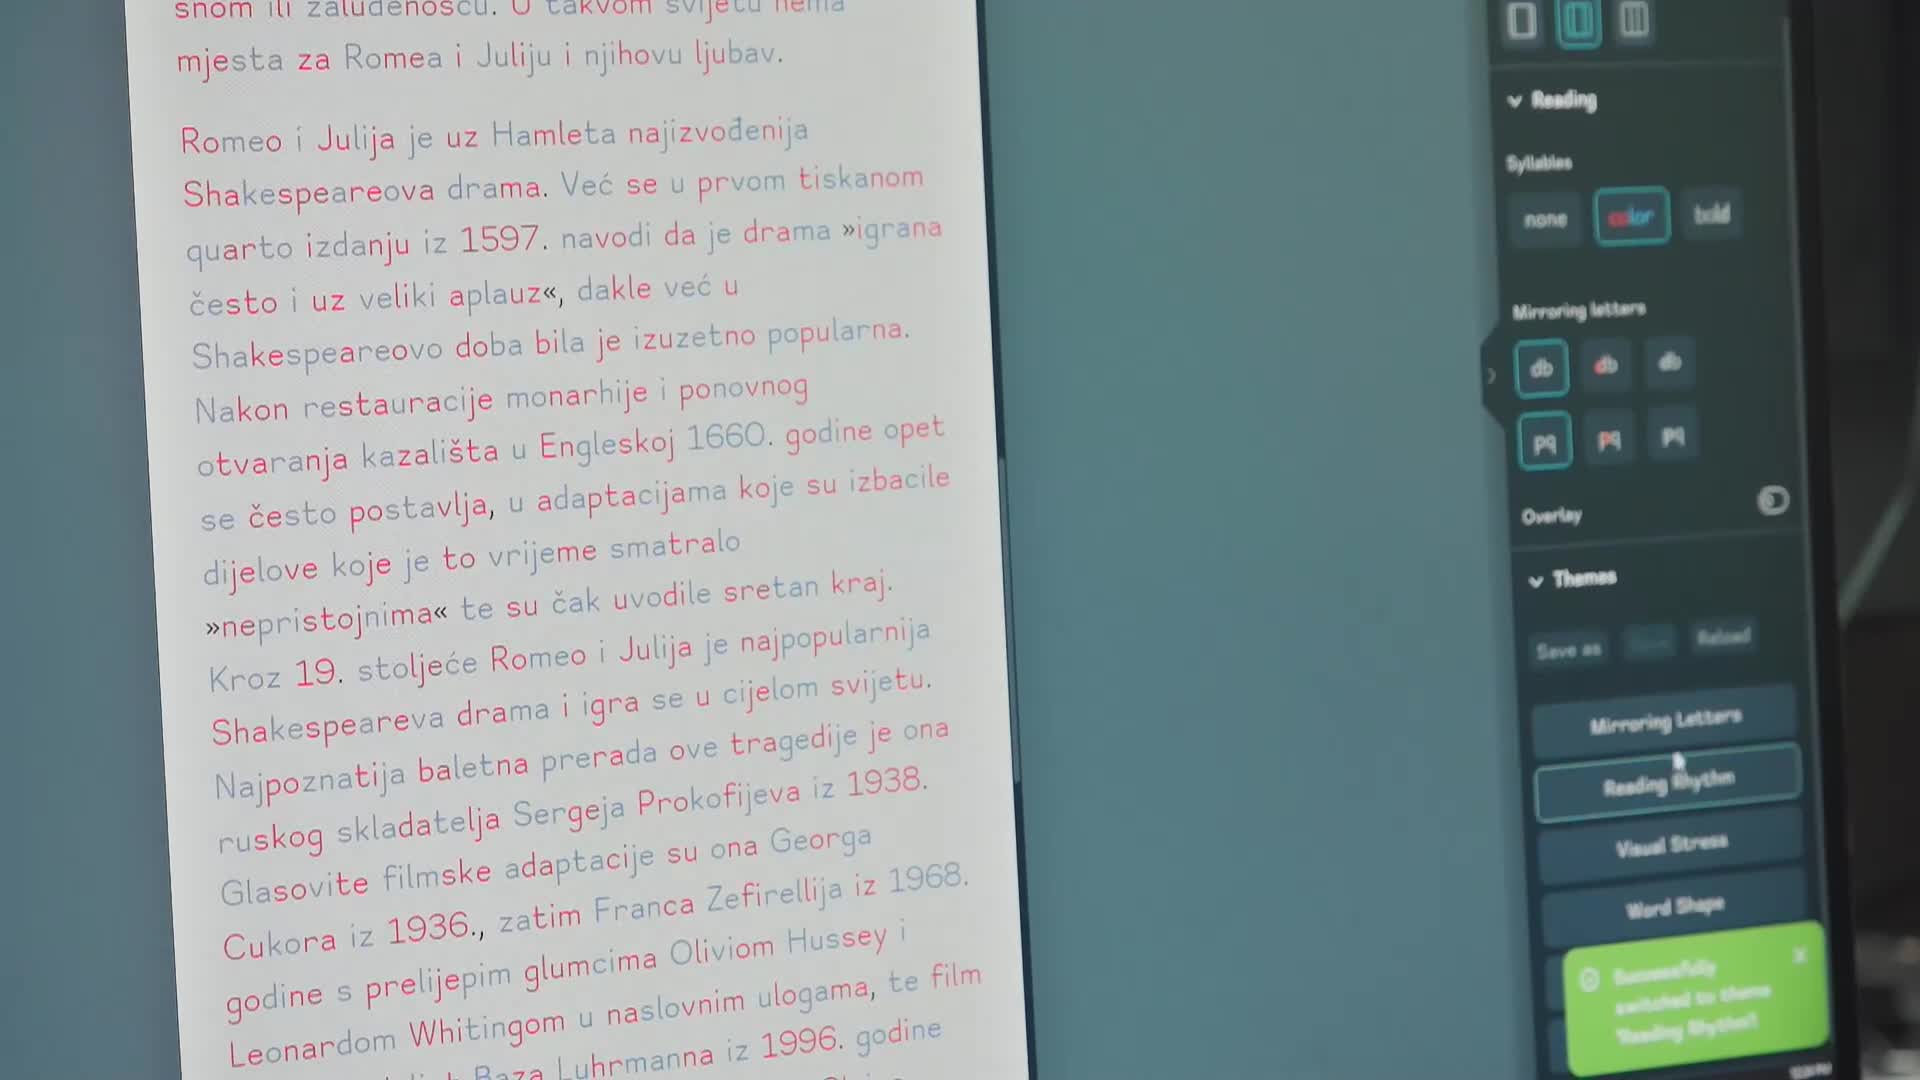 snom ili zaluđenošću. U takvom svijetu nema
mjesta za Romea i Juliju i njihovu ljubav.
Romeo i Julija je uz Hamleta najizvođenija
Shakespeareova drama. Već se u prvom tiskanom
quarto izdanju iz 1597. navodi da je drama »igrana
često i uz veliki aplauz«, dakle već u
Shakespeareovo doba bila je izuzetno popularna.
Nakon restauracije monarhije i ponovnog
otvaranja kazališta u Engleskoj 1660. godine opet
se često postavlja, u adaptacijama koje su izbacile
dijelove koje je to vrijeme smatralo
»nepristojnima« te su čak uvodile sretan kraj.
Kroz 19. stoljeće Romeo i Julija je najpopularnija
Shakespeareva drama i igra se u cijelom svijetu.
Najpoznatija baletna prerada ove tragedije je ona
ruskog skladatelja Sergeja Prokofijeva iz 1938.
Glasovite filmske adaptacije su ona Georga
Cukora iz 1936., zatim Franca Zefirellija iz 1968.
godine s prelijepim glumcima Oliviom Hussey i
Leonardom Whitingom u naslovnim ulogama, te film
Baza Luhrmanna iz 1996. godine
Reading
Syllables
none color bold
Mirroring letters
db db db
pq pq pq
Overlay
Themes
Save as Save Reload
Mirroring Letters
Reading Rhythm
Visual Stress
Word Shape
Successfully
switched to theme
'Reading Rhythm'!